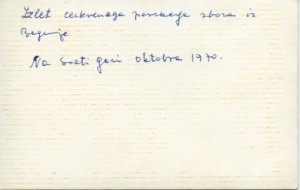 Izlet cerkvenega pevskega zbora iz
Begunj
Na Sveti gori oktobra 1970.